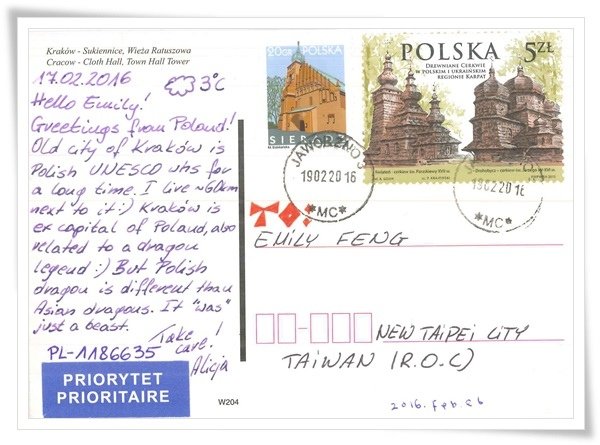 Kraków - Sukiennice, Wieża Ratuszowa
Cracow - Cloth Hall, Town Hall Tower
17.02.2016 3°C
Hello Emily!
Greetings from Poland!
Old city of Kraków is
Polish UNESCO whs for
a long time. I live ~60km
next to it :) Kraków is
ex capital of Poland, also
related to a dragon
legend :) But Polish
dragon is different than
Asian dragons. It "was"
just a beast.
Take care!
Alicja
PL-1186635
PRIORYTET
PRIORITAIRE
W204
90GR POLSKA
SIERADZ
POLSKA 5ZŁ
DREWNIANE CERKWIE
W POLSKIM I UKRAIŃSKIM
REGIONIE KARPAT
JAWORZNO 3
19022016
*MC*
19022016
*MC*
TO:
EMILY FENG
NEW TAIPEI CITY
TAIWAN (R.O.C)
2016.Feb.26